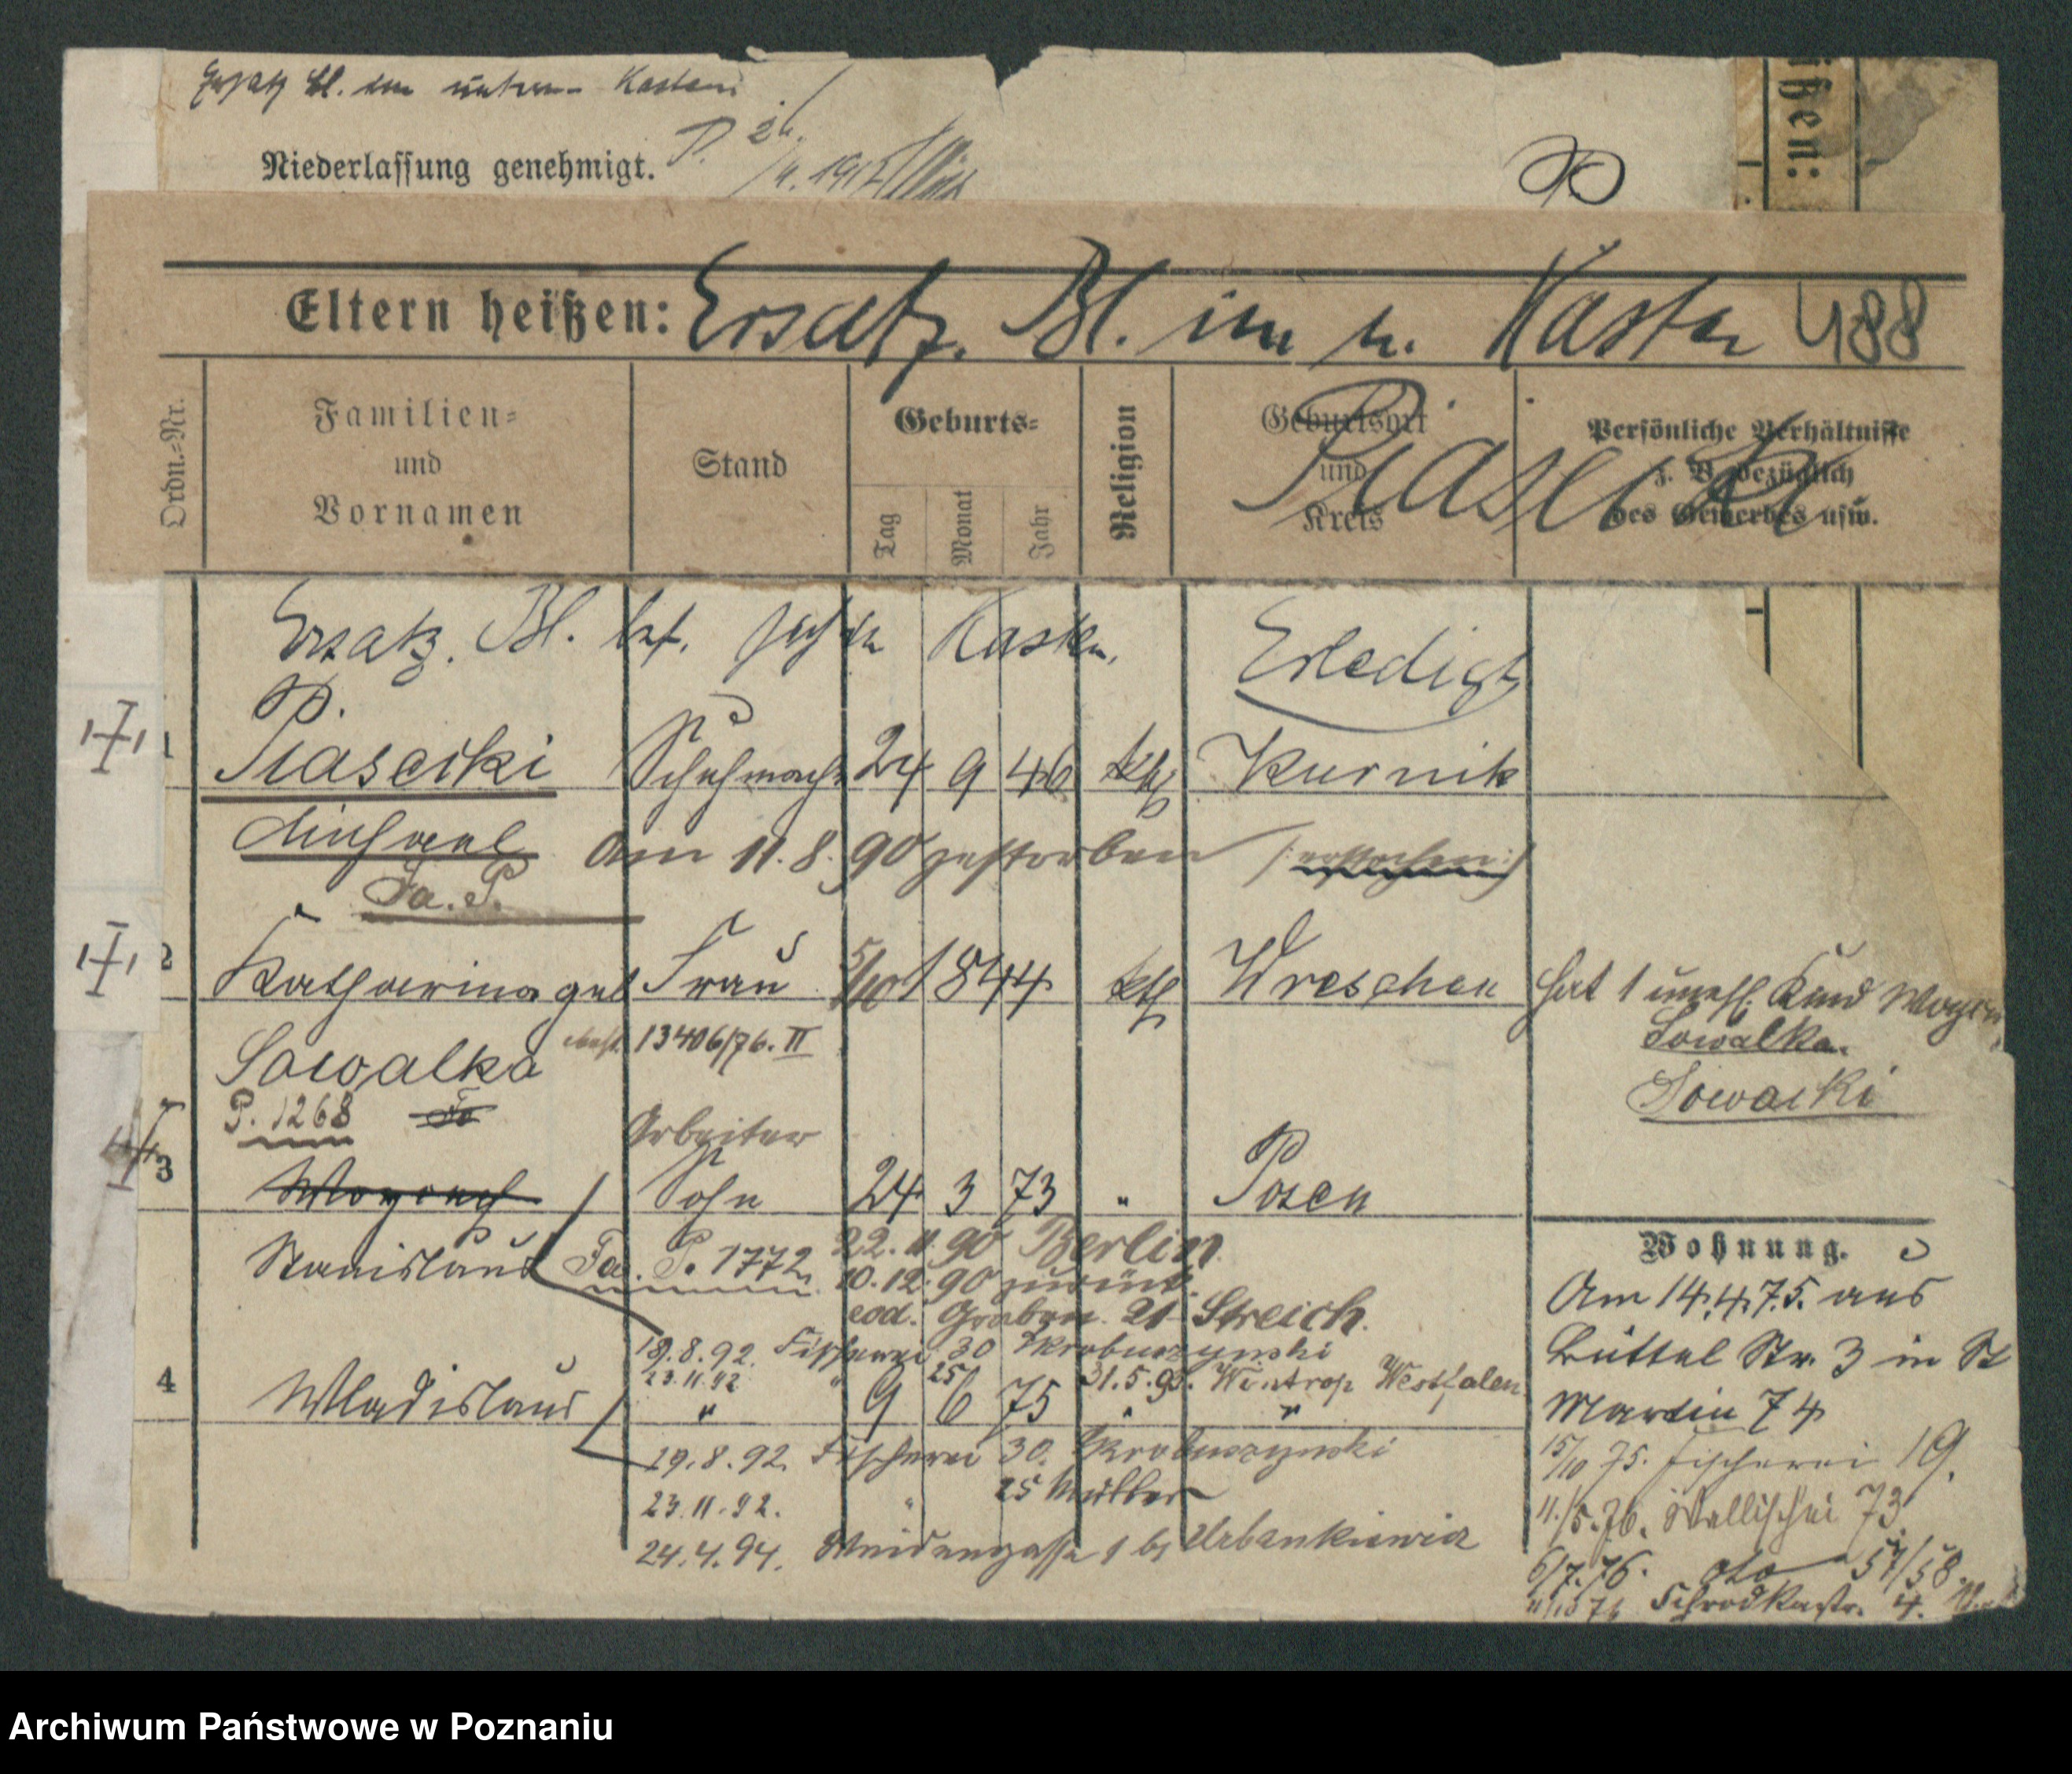 Ersatz Bl. im unteren Kasten
Niederlassung genehmigt.
P.
ißen:
Eltern heißen: Ersatz. Bl. im u. Kasten 488
Ordn.-Nr.
Familien-
und
Vornamen
Stand
Geburts-
Tag
Monat
Jahr
Religion
Geburtsort
und
Kreis
Persönliche Verhältnisse
z. B. bezüglich
des Gewerbes usw.
Piasecki
Ersatz. Bl. bef. sich im Kasten.
Erledigt
P.
1 Piasecki Schuhmacher 24 9 46 kth Kurnik
Michael am 11.8.90 gestorben
Fa. P.
2 Katharina geb Frau 5/10 1844 kth Wreschen hat 1 unehl. Kind
Sowalka 13406/76. II
Sowalka.
Sowacki
P. 1268 Fa
Arbeiter
3 Woyzech Sohn 24 3 73 " Posen
Stanislaus Fa. P. 1772
22.11.90 Berlin
10.12.90 zurück
eod. Graben 21 Streich.
19.8.92. Fischerei 30 Skrobuszynski
23.11.92 " 25
31.5.95. Wintrop Westfalen.
4 Wladislaus " 9 6 75 " "
19.8.92. Fischerei 30. Skrobuszynski
23.11.92. " 25 Müller
24.4.94. Weidengasse 1 bei Urbankiewicz
Wohnung.
Am 14.4.75. aus
Büttel Str. 3 in St
Martin 74
15/10 75. Fischerei 19.
11./5.76. Wallischei 73
6/7.76. dto 57/58.
11/10 76 Schrodkastr. 4.